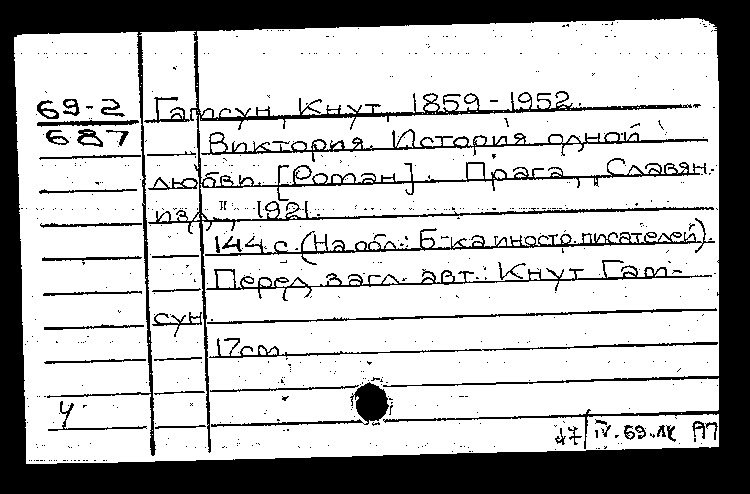 69-2
687
Гамсун, Кнут, 1859-1952.
Виктория. История одной
любви. [Роман]. Прага, „Славян.
изд.", 1921.
144 с. (На обл.: Б-ка иностр. писателей).
Перед загл. авт.: Кнут Гам-
сун.
17см.
IV.69.ЛК